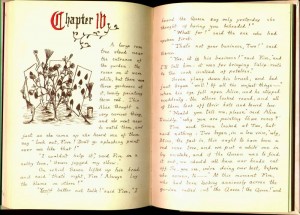 Chapter IV
A large rose
tree stood near
the entrance of
the garden: the
roses on it were
white, but there
were three gardeners
at it, busily painting
them red. This
Alice thought a
very curious thing,
and she went near
to watch them, and
just as she came up she heard one of them
say "look out, Five! Don't go splashing paint
over me like that!"
"I couldn't help it," said Five, in a
sulky tone, "Seven jogged my elbow."
On which Seven lifted up his head
and said "that's right, Five! Always lay
the blame on others!"
"You'd better not talk!" said Five, "I
heard the Queen say only yesterday she
thought of having you beheaded!"
"What for?" said the one who had
spoken first.
"That's not your business, Two!" said
Seven.
"Yes, it is his business!" said Five, "and
I'll tell him: it was for bringing tulip-roots
to the cook instead of potatoes."
Seven flung down his brush, and had
just begun "well! Of all the unjust things—"
when his eye fell upon Alice, and he stopped
suddenly; the others looked round, and all
of them took off their hats and bowed low.
"Would you tell me, please," said Alice
timidly, "why you are painting those roses?"
Five and Seven looked at Two, but
said nothing: Two began, in a low voice, "why,
Miss, the fact is, this ought to have been a
red rose tree, and we put a white one in
by mistake, and if the Queen was to find
it out, we should all have our heads cut
off. So, you see, we're doing our best, before
she comes, to—" At this moment Five,
who had been looking anxiously across the
garden called out "the Queen! the Queen!" and